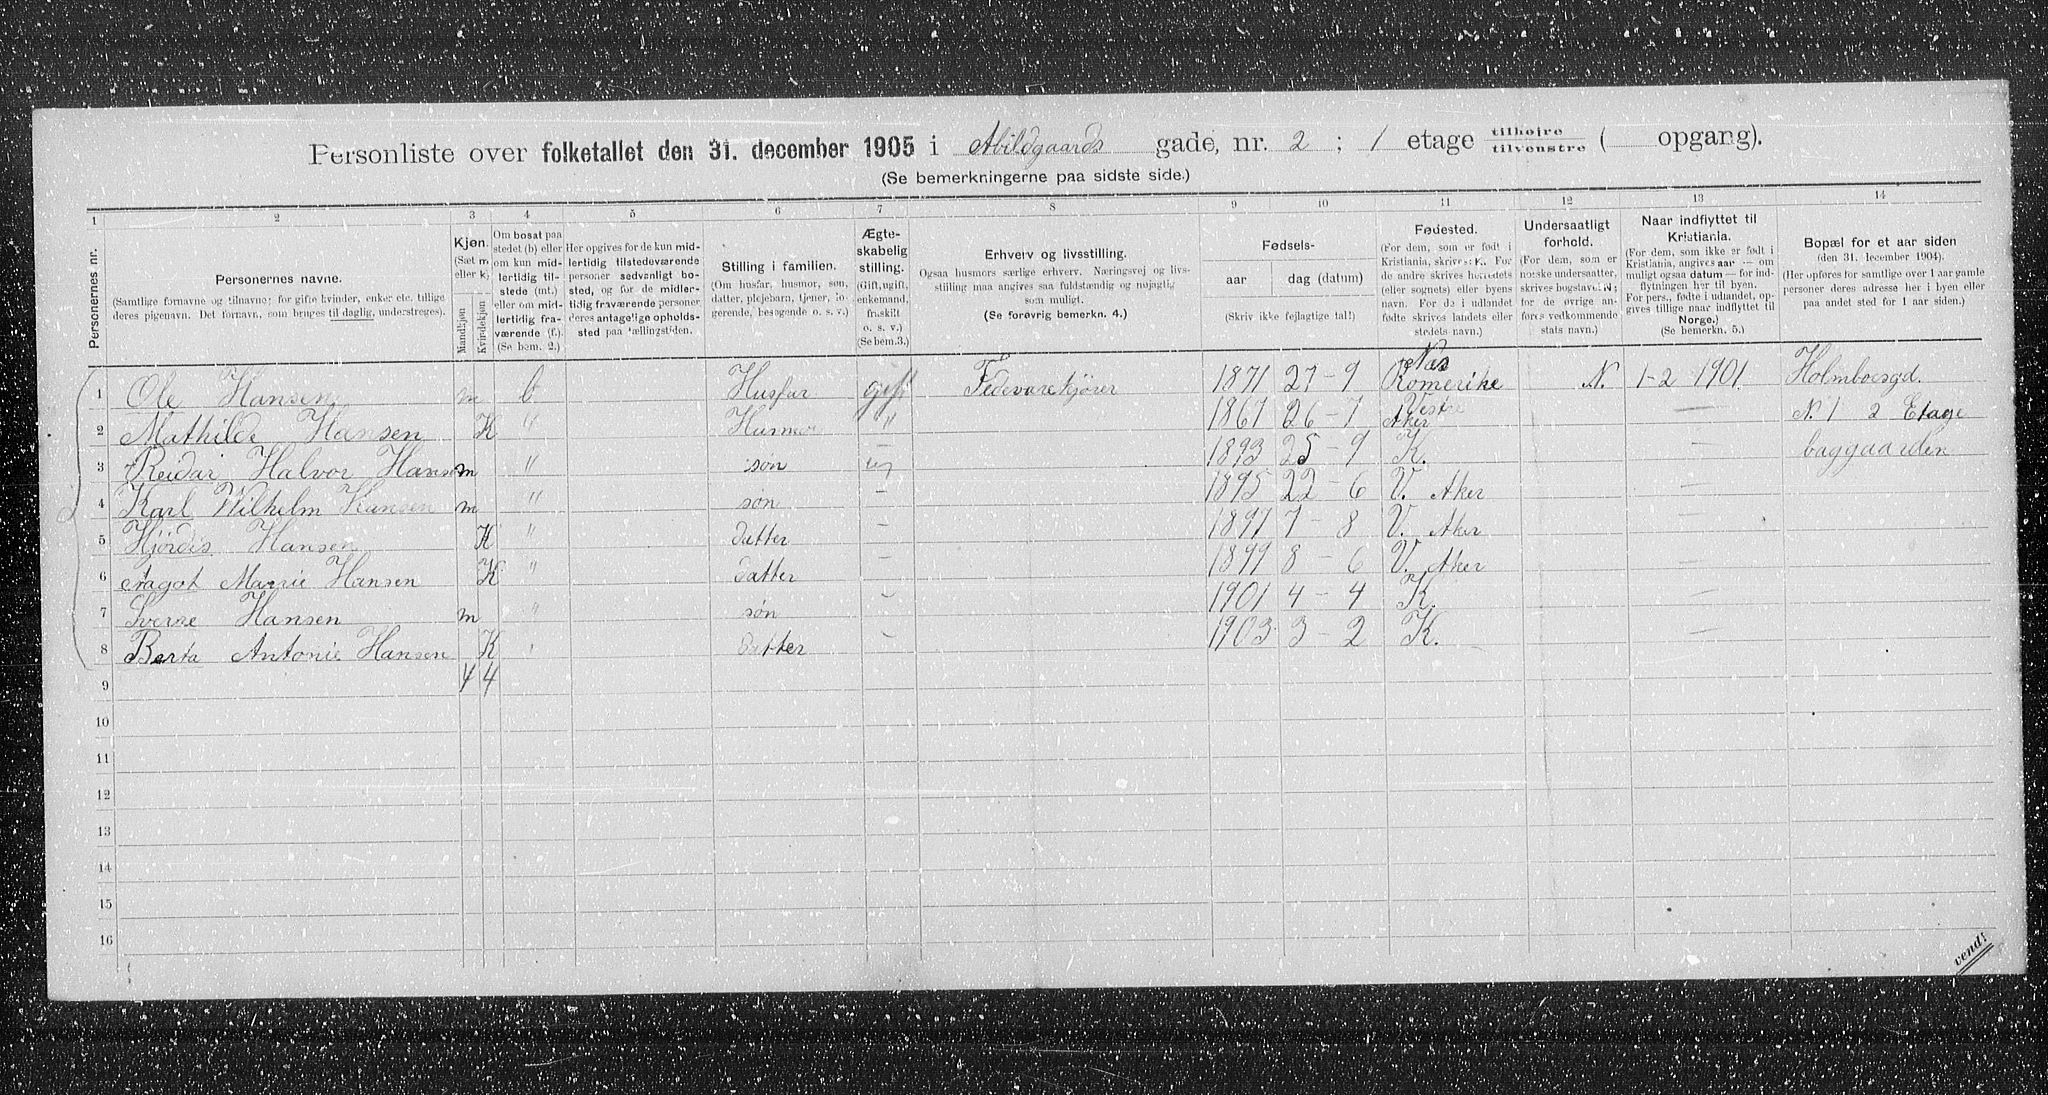 Personliste over folketallet den 31. december 1905 i Abildgaards gade, nr. 2 ; 1 etage tilhøjre tilvenstre ( opgang).
(Se bemerkningerne paa sidste side.)
1 2 3 4 5 6 7 8 9 10 11 12 13 14
Personernes nr.
Personernes navne.
(Samtlige fornavne og tilnavne; for gifte kvinder, enker etc. tillige
deres pigenavn. Det fornavn, som bruges til daglig, understreges).
Kjøn.
(Sæt m
eller k)
Mandkjøn
Kvindekjøn
Om bosat paa
stedet (b) eller
om kun mid-
lertidig til-
stede (mt.)
eller om mid-
lertidig fra-
værende (f.).
(Se bem. 2.)
Her opgives for de kun mid-
lertidig tilstedeværende
personer sedvanligt bo-
sted, og for de midler-
tidig fraværende personer
deres antagelige opholds-
sted paa tællingstiden.
Stilling i familien.
(Om husfar, husmor, søn,
datter, plejebarn, tjener, lo-
gerende, besøgende o. s. v.)
Ægte-
skabelig
stilling.
(Gift, ugift,
enkemand,
fraskilt
o. s. v.)
(Se bem. 3.)
Erhverv og livsstilling.
Ogsaa husmors særlige erhverv. Næringsvej og livs-
stilling maa angives saa fuldstændig og nøjagtig
som muligt.
(Se forøvrig bemerkn. 4.)
Fødsels-
aar dag (datum)
(Skriv ikke fejlagtige tal!)
Fødested.
(For dem, som er født i
Kristiania, skrives: K. For
de andre skrives herredets
(eller sognets) eller byens
navn. For de i udlandet
fødte skrives landets eller
stedets navn.)
Undersaatligt
forhold.
(For dem, som er
norske undersaatter,
skrives bogstavet N;
for de øvrige an-
føres vedkommende
stats navn.)
Naar indflyttet til
Kristiania.
(For dem, som ikke er født i
Kristiania, angives aar — om
muligt ogsaa datum — for ind-
flytningen her til byen.
For pers., fødte i udlandet, op-
gives tillige naar indflyttet til
Norge.)
(Se bemerkn. 5.)
Bopæl for et aar siden
(den 31. december 1904).
(Her opføres for samtlige over 1 aar gamle
personer deres adresse her i byen eller
paa andet sted for 1 aar siden.)
1 Ole Hansen m b Husfar gift Fedevarekjører 1871 27-9 Næs Romerike N. 1-2 1901 Holmboesgd.
2 Mathilde Hansen K " Husmor " 1867 26-7 Vestre Aker — N. 1 2 Etage
3 Reidar Halvor Hansen m " søn ug 1893 25-9 K. — baggaarden
4 Karl Wilhelm Hansen m " søn — 1895 22-6 V. Aker —
5 Hjørdis Hansen K " datter — 1897 7-8 V. Aker —
6 Magot Marie Hansen K " datter — 1899 8-6 V. Aker —
7 Sverre Hansen m " søn — 1901 4-4 K. —
8 Berta Antonie Hansen K " datter — 1903 3-2 K. —
9 4 4
10
11
12
13
14
15
16
vend!